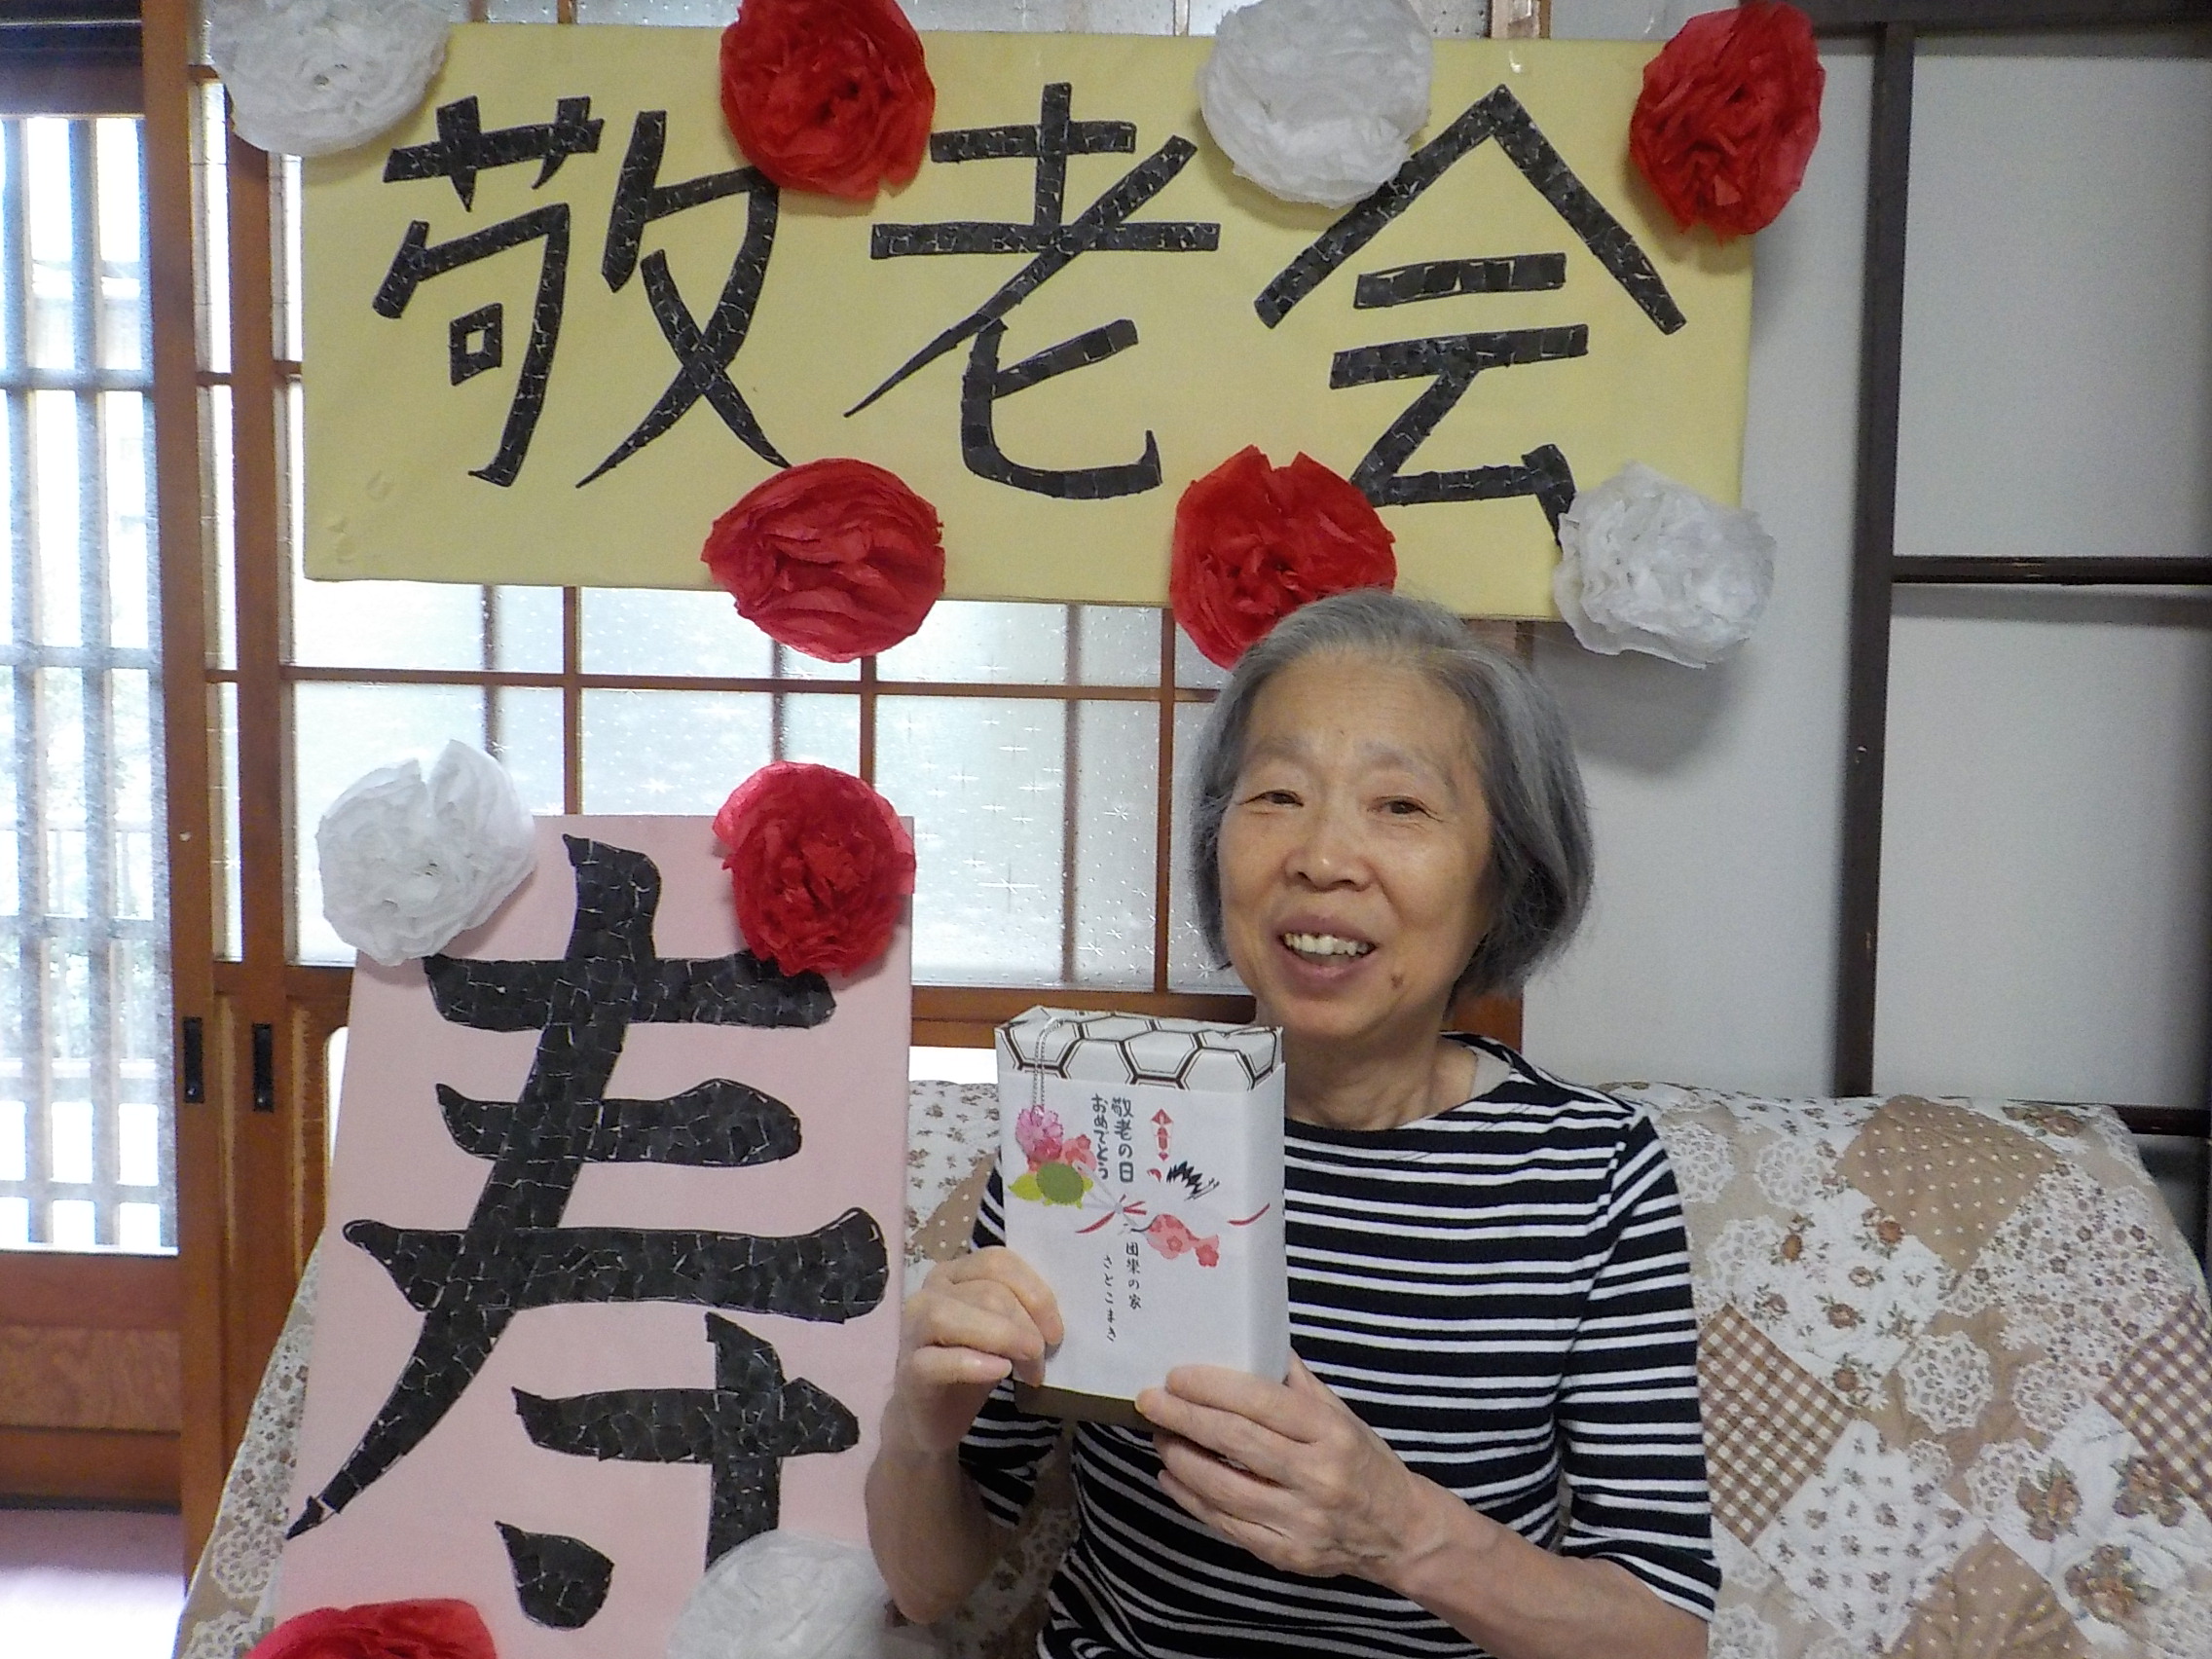 敬老会
寿
敬老の日
おめでとう
団樂の家
さとこまき